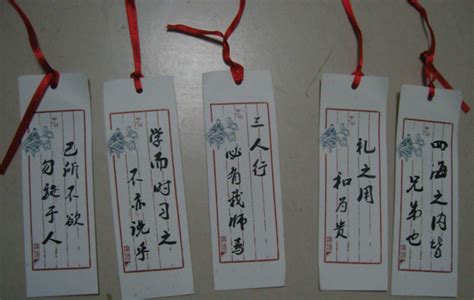 己所不欲
勿施于人
学而时习之
不亦说乎
三人行
必有我师焉
礼之用
和为贵
四海之内皆
兄弟也